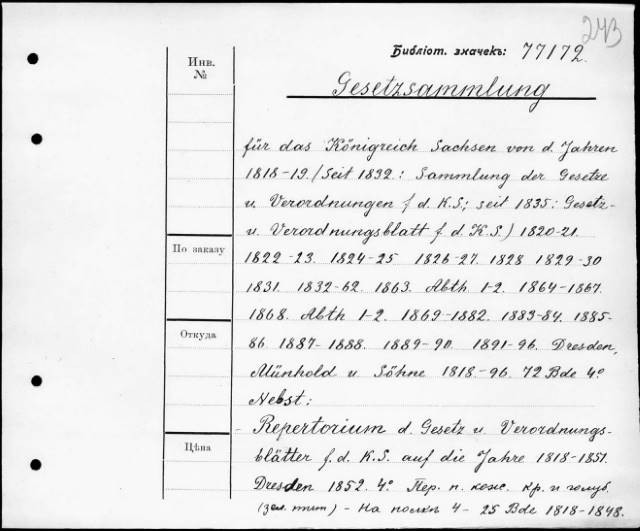 243
Библіот. значекъ: 77172.
Инв. №
Gesetzsammlung
für das Königreich Sachsen von d. Jahren
1818-19. (Seit 1832: Sammlung der Gesetze
u. Verordnungen f d. K.S; seit 1835: Gesetz-
u. Verordnungsblatt f d. K.S.) 1820-21.
По заказу
1822-23. 1824-25 1826-27. 1828 1829-30
1831. 1832-62. 1863. Abth 1-2. 1864-1867.
1868. Abth 1-2. 1869-1882. 1883-84. 1885-
Откуда
86. 1887-1888. 1889-90. 1891-96. Dresden,
Münhold u Söhne 1818-96. 72 Bde 4°
Nebst:
- Repertorium d. Gesetz u. Verordnungs-
Цѣна
blätter f. d. K.S. auf die Jahre 1818-1851.
Dresden 1852. 4°. Пер. п. кож. кр. и голуб.
(зол. тит) - На полкѣ 4 - 25 Bde 1818-1848.